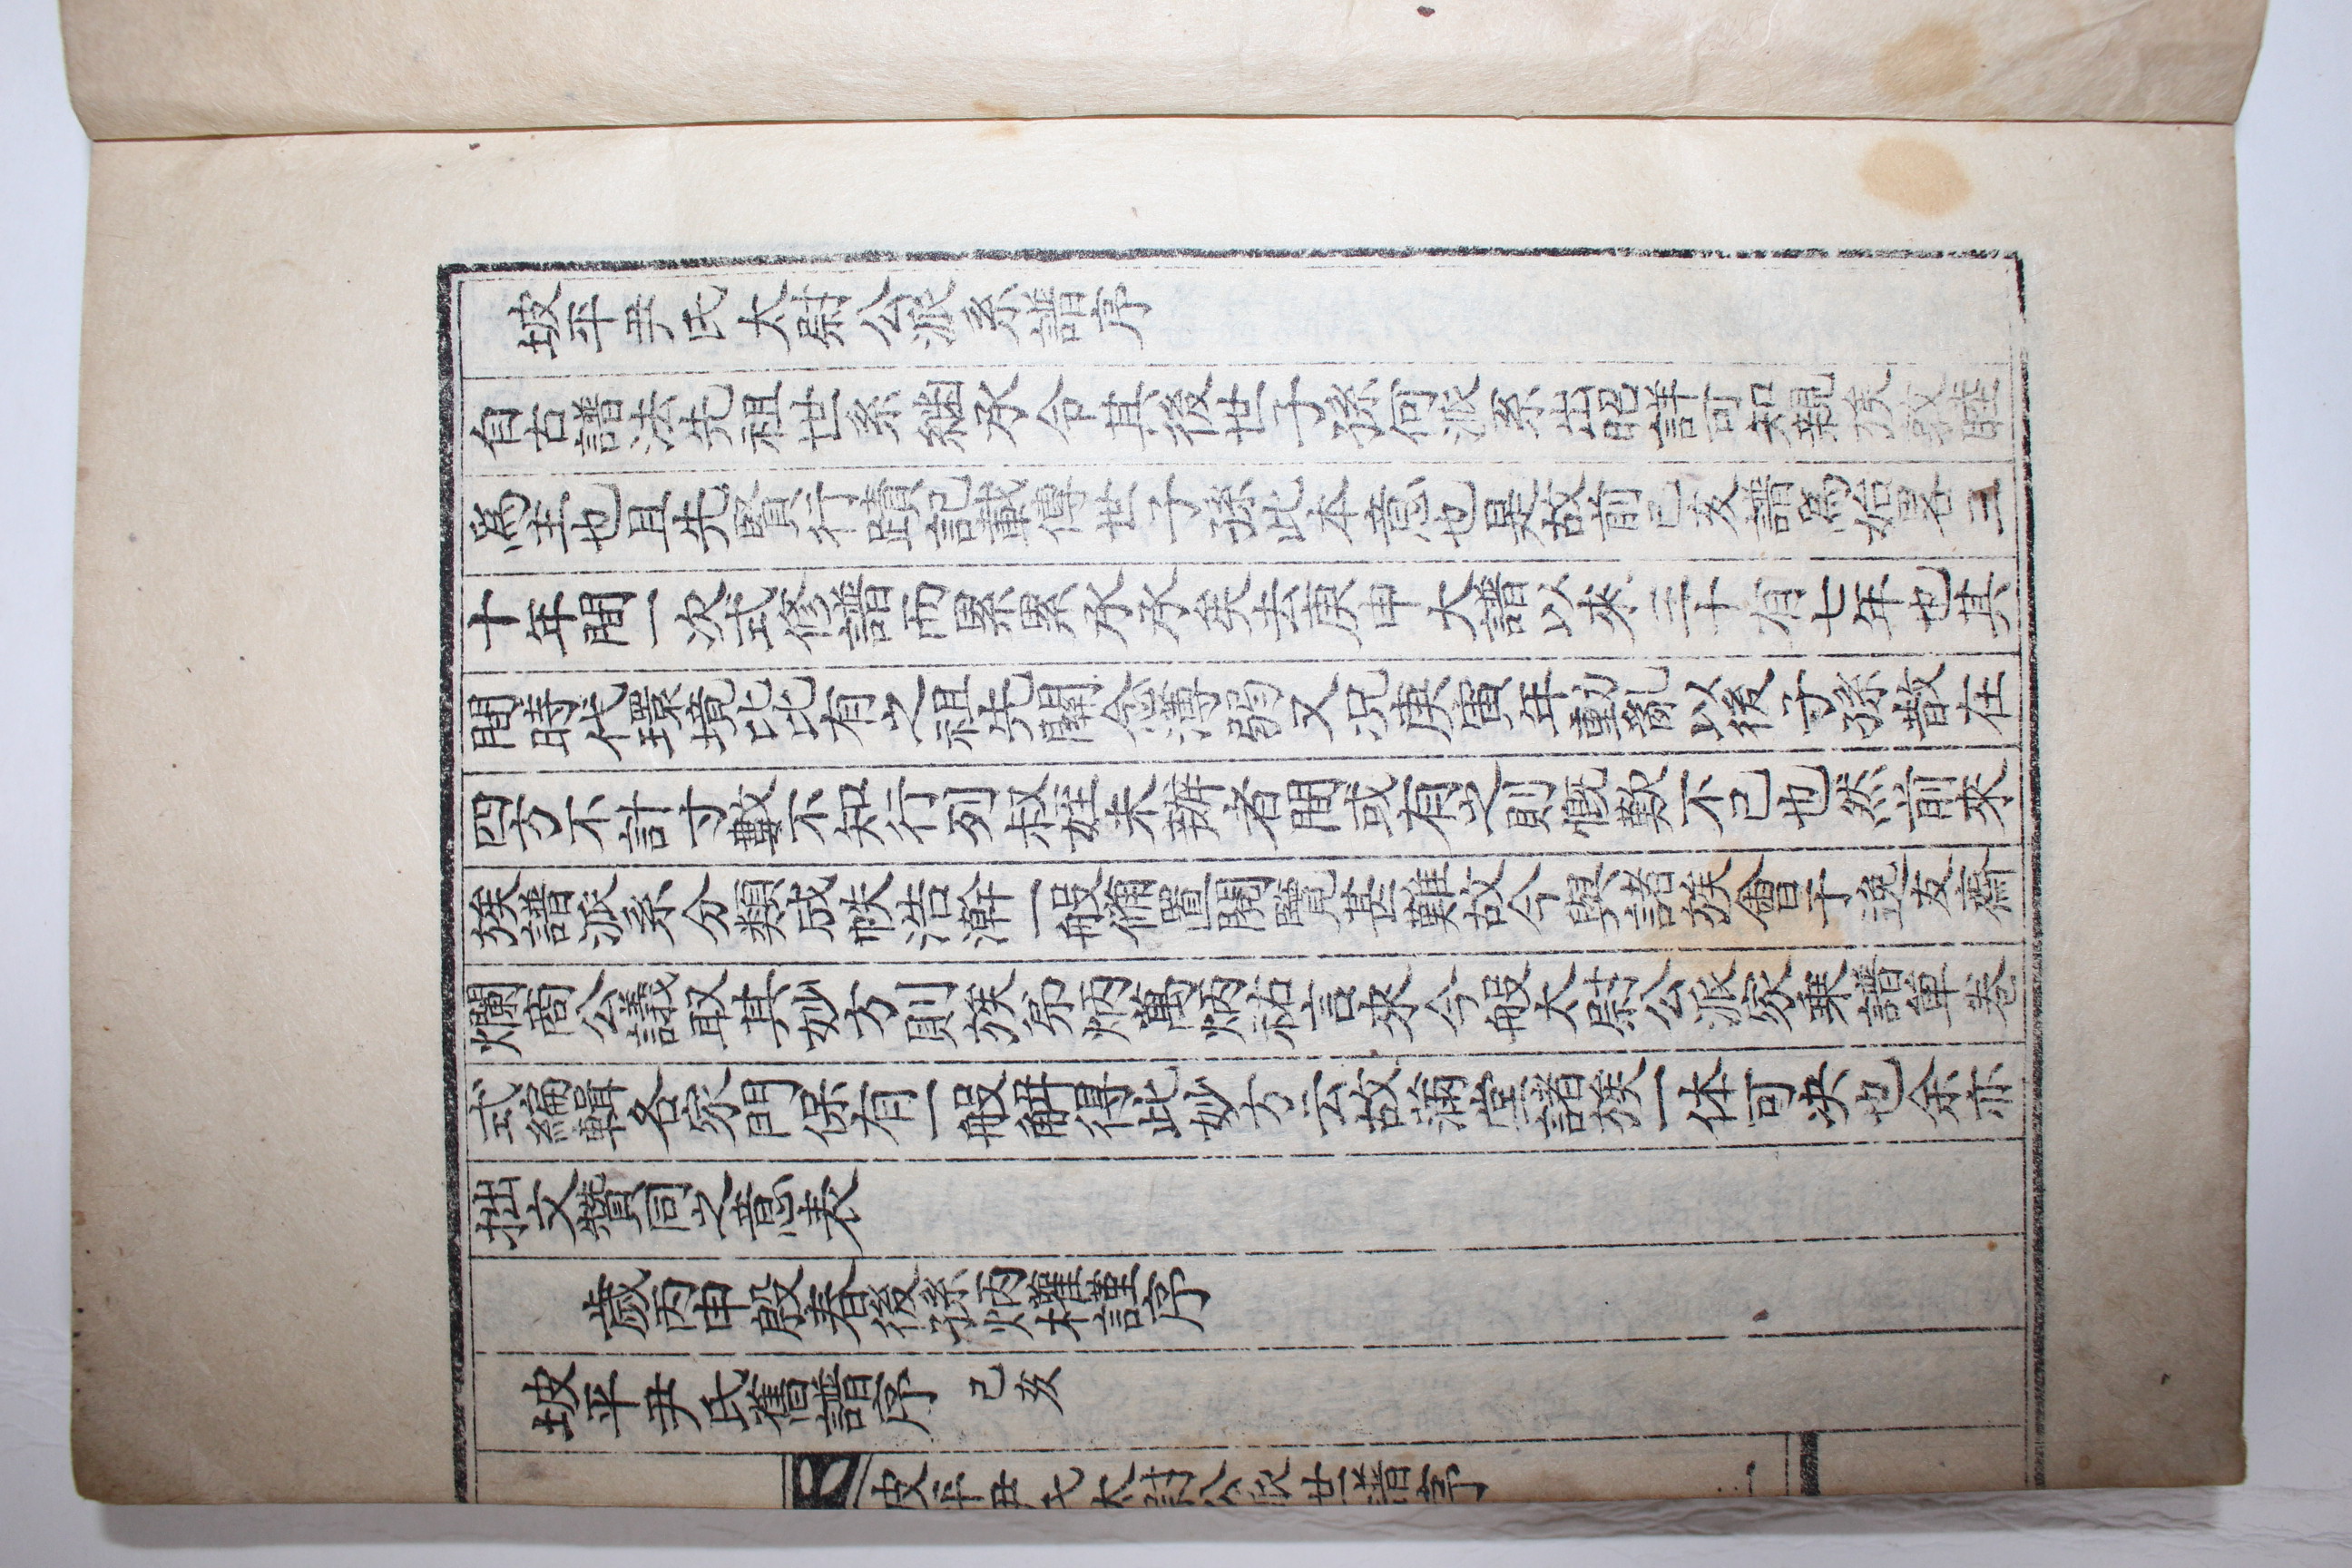 坡平尹氏太尉公派系譜序
自古譜法先祖世系繼承令其後世子孫何派系出昭詳可知親疎叙睦
爲主也且先賢行蹟記載傳世子孫此本意也是故前己亥譜爲始畧三
十年間一次式修譜而累累承承矣去庚申大譜以來三十有七年也其
間時代環境比比有之祖先關念薄弱又況庚寅年動亂以後子孫散在
四方不計寸數不知行列叔姪未辨者間或有之則慨歎不已也然前來
族譜派系分類成帙浩澣一般備置閱覽甚難故今與諸族會于逸友齋
爛商公議取其妙方則族弟炳萬炳祜言來今般太尉公派家乘譜單卷
式編輯各家門保有一般解得此妙方云故滿堂諸族一体可决也余亦
拙文贊同之意表
歲丙申殷春後孫炳耀謹序
坡平尹氏舊譜序 己亥
坡平尹氏太尉公派世譜序 一